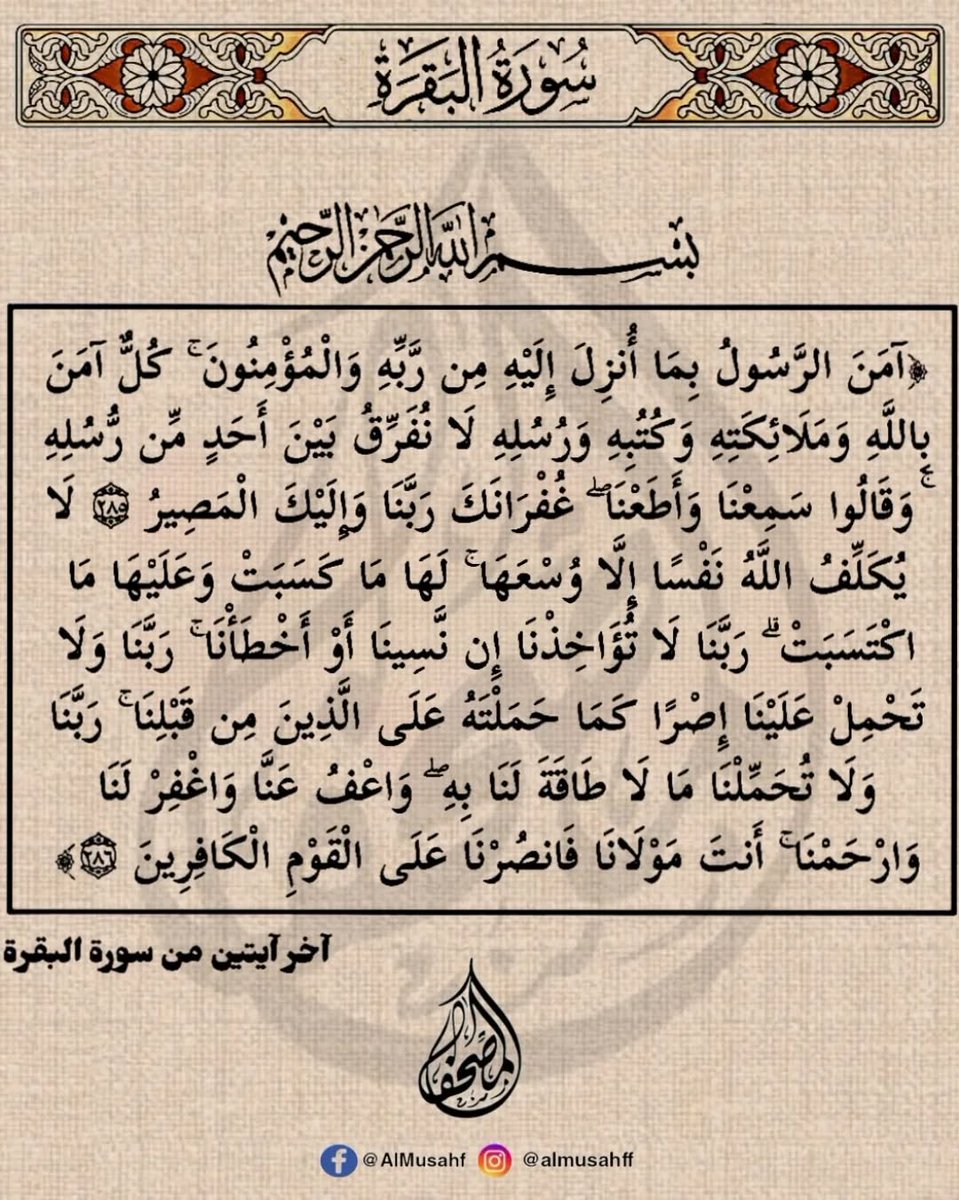 سُورَةُ البَقَرَةِ
بِسْمِ اللَّهِ الرَّحْمَٰنِ الرَّحِيمِ
﴿آمَنَ الرَّسُولُ بِمَا أُنزِلَ إِلَيْهِ مِن رَّبِّهِ وَالْمُؤْمِنُونَ ۚ كُلٌّ آمَنَ
بِاللَّهِ وَمَلَائِكَتِهِ وَكُتُبِهِ وَرُسُلِهِ لَا نُفَرِّقُ بَيْنَ أَحَدٍ مِّن رُّسُلِهِ
ۚ وَقَالُوا سَمِعْنَا وَأَطَعْنَا ۖ غُفْرَانَكَ رَبَّنَا وَإِلَيْكَ الْمَصِيرُ ٢٨٥ لَا
يُكَلِّفُ اللَّهُ نَفْسًا إِلَّا وُسْعَهَا ۚ لَهَا مَا كَسَبَتْ وَعَلَيْهَا مَا
اكْتَسَبَتْ ۗ رَبَّنَا لَا تُؤَاخِذْنَا إِن نَّسِينَا أَوْ أَخْطَأْنَا ۚ رَبَّنَا وَلَا
تَحْمِلْ عَلَيْنَا إِصْرًا كَمَا حَمَلْتَهُ عَلَى الَّذِينَ مِن قَبْلِنَا ۚ رَبَّنَا
وَلَا تُحَمِّلْنَا مَا لَا طَاقَةَ لَنَا بِهِ ۖ وَاعْفُ عَنَّا وَاغْفِرْ لَنَا
وَارْحَمْنَا ۚ أَنتَ مَوْلَانَا فَانصُرْنَا عَلَى الْقَوْمِ الْكَافِرِينَ ٢٨٦﴾
آخر آيتين من سورة البقرة
المصحف
@AlMusahf @almusahff